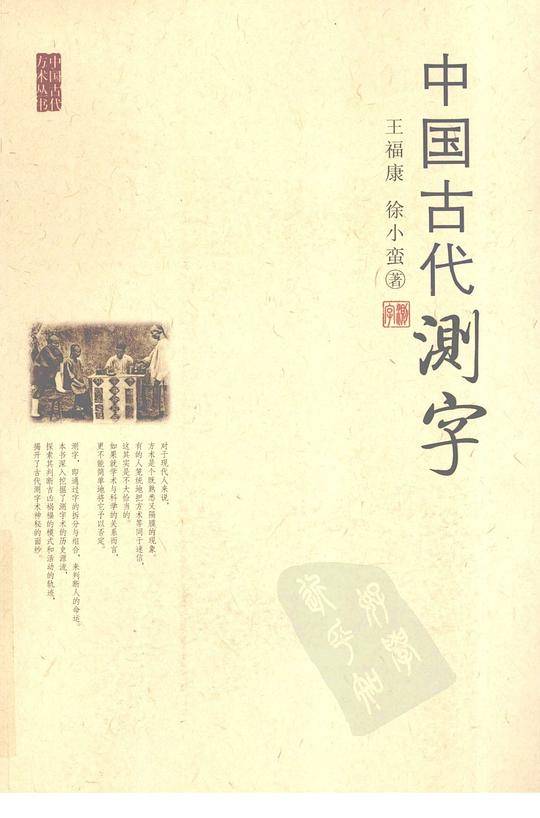 中国古代
方术丛书
中国古代测字
王福康 徐小蛮 著
测字
对于现代人来说，
方术是个既熟悉又隔膜的现象。
有的人笼统地把方术等同于迷信，
这其实是不大恰当的。
如果就学术与科学的关系而言，
更不能简单地将它予以否定。
测字，即通过字的拆分与组合，来判断人的命运。
本书深入挖掘了测字术的历史源流，
探索其判断吉凶祸福的模式和活动的轨迹，
揭开了古代测字术神秘的面纱。
好学
近乎知